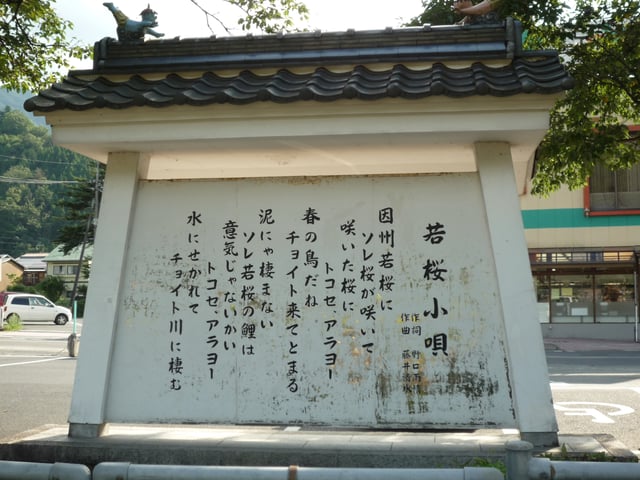 若桜小唄
作詞 野口
作曲 藤井
因州若桜に
ソレ桜が咲いて
咲いた桜に
トコセ、アラヨー
春の鳥だね
チョイト来てとまる
泥にゃ棲まない
ソレ若桜の鯉は
意気じゃないかい
トコセ、アラヨー
水にせかれて
チョイト川に棲む